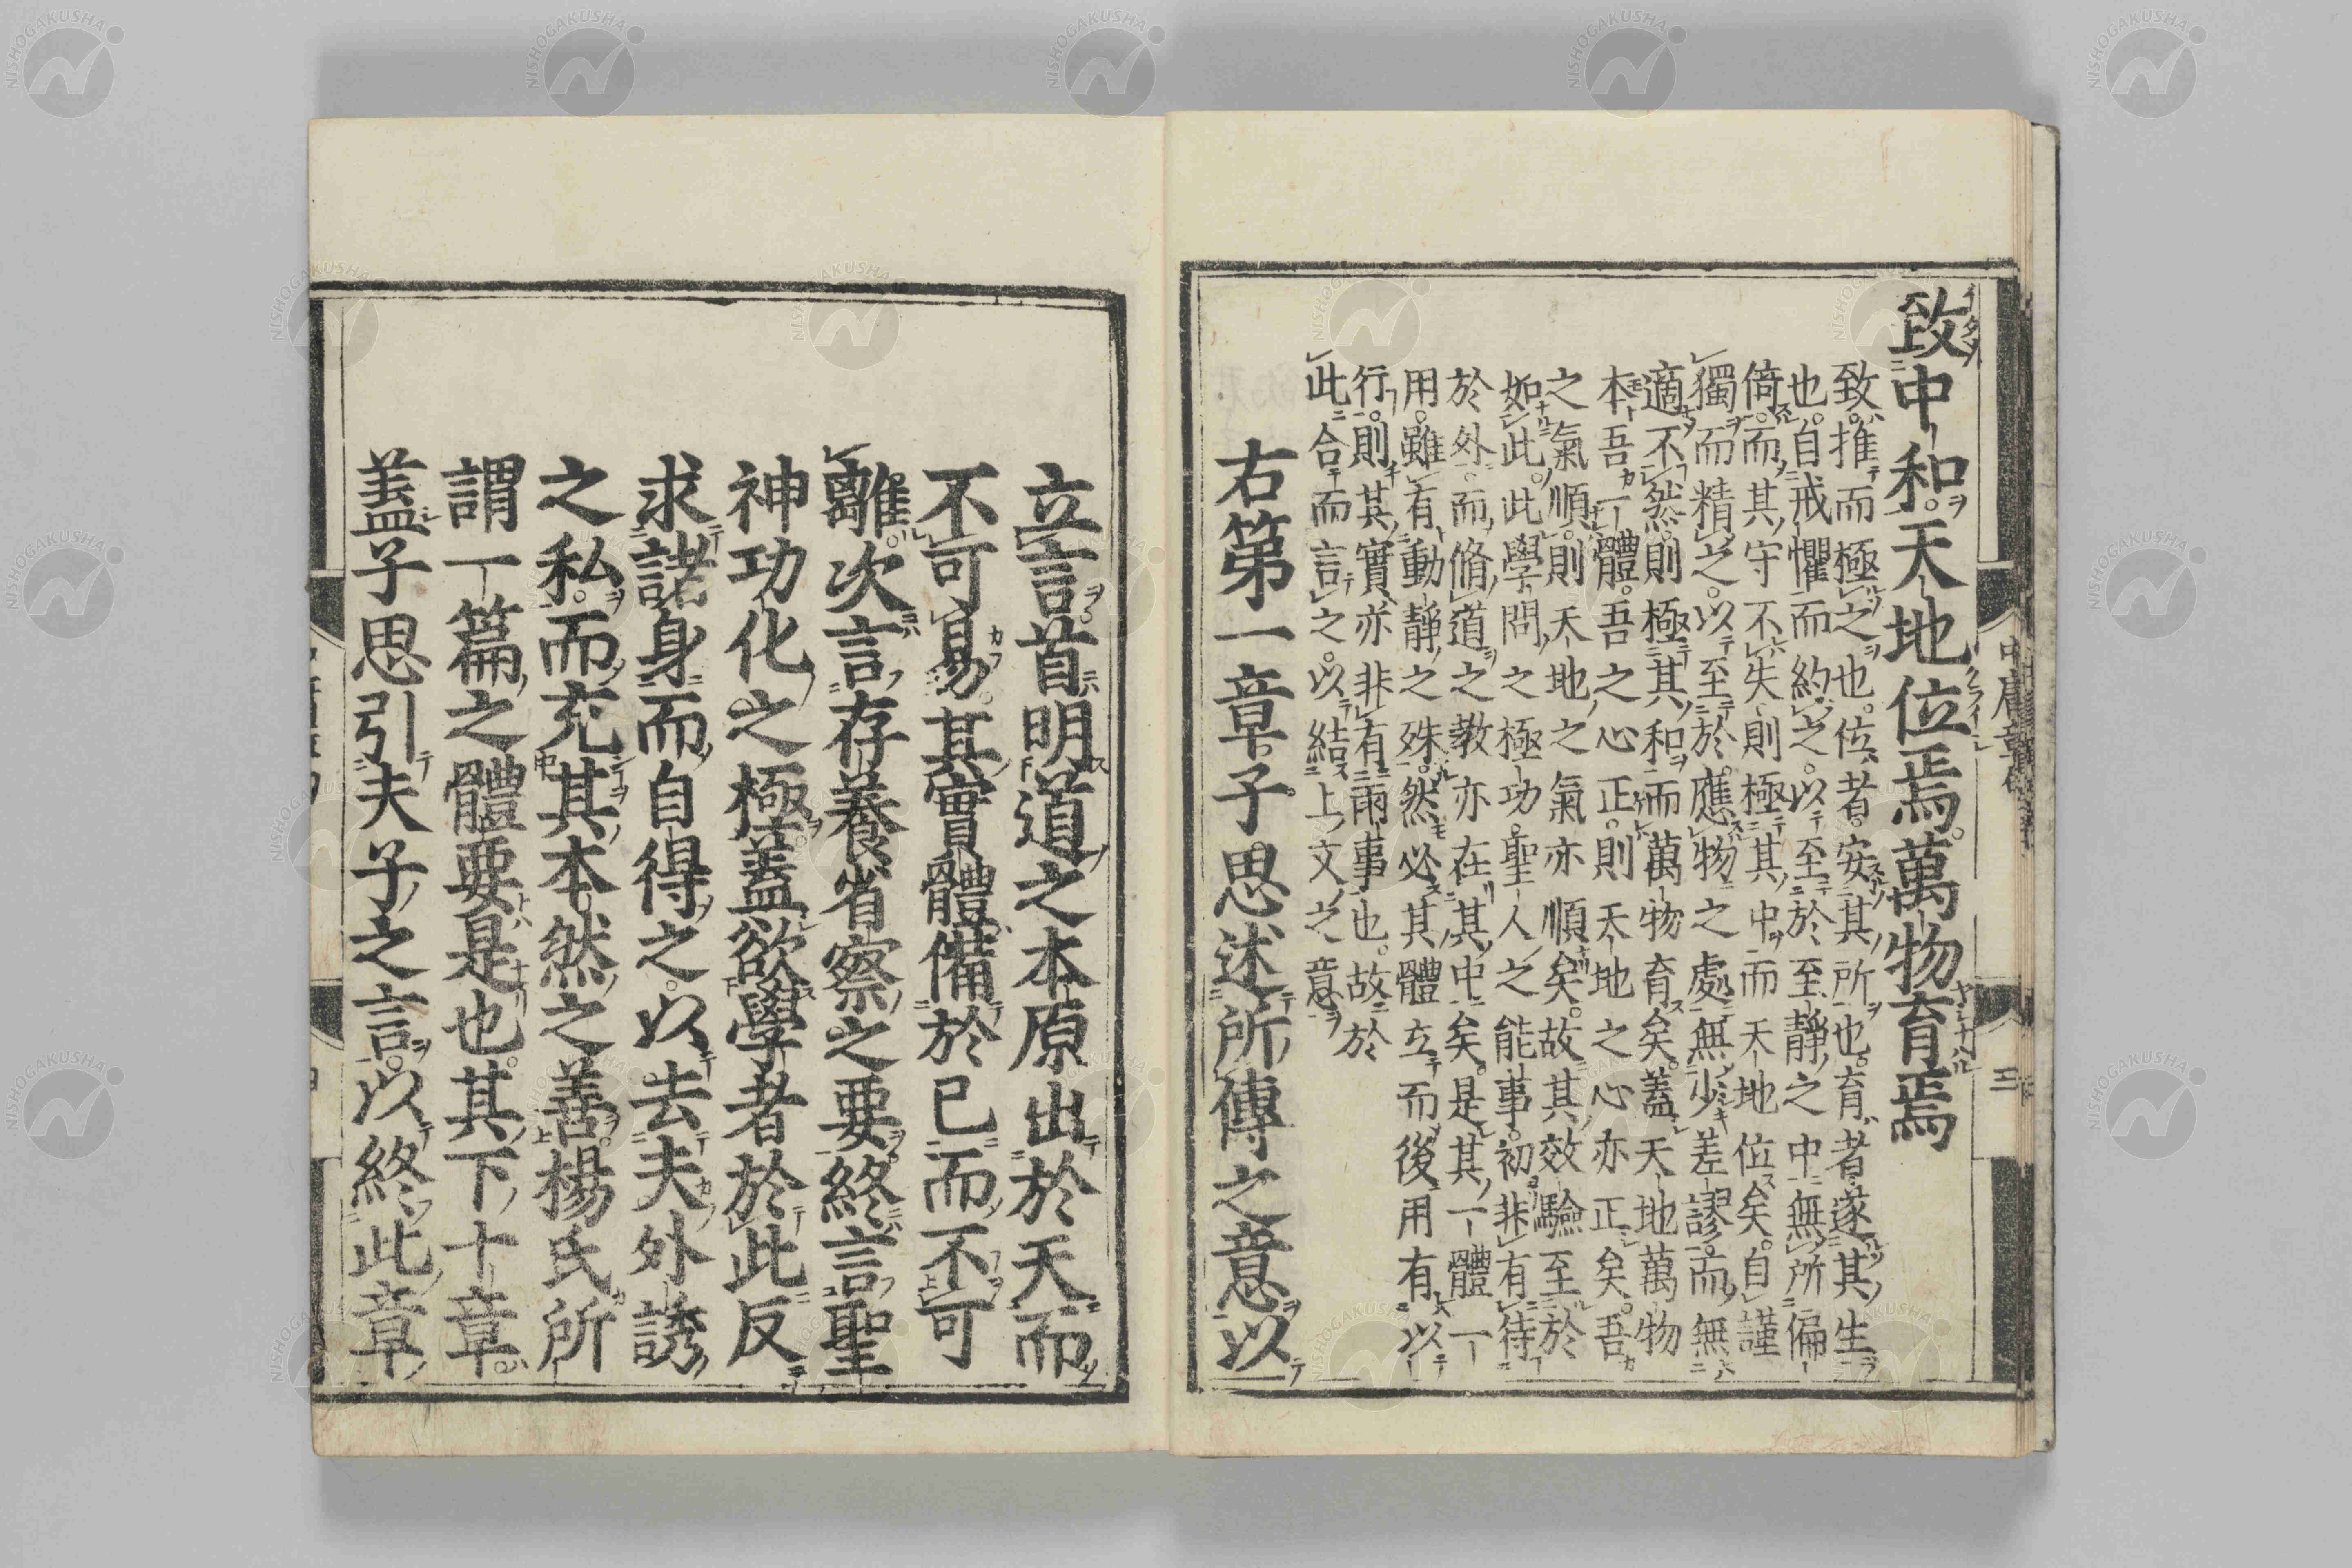 致中和天地位焉萬物育焉
致推而極之也位者安其所也育者遂其生
也自戒懼而約之以至於至靜之中無所偏
倚而其守不失則極其中而天地位矣自謹
獨而精之以至於應物之處無少差謬而無
適不然則極其和而萬物育矣蓋天地萬物
本吾一體吾之心正則天地之心亦正矣吾
之氣順則天地之氣亦順矣故其效驗至於
如此此學問之極功聖人之能事初非有待
於外而脩道之教亦在其中矣是其一體一
用雖有動靜之殊然必其體立而後用有以
行則其實亦非有兩事也故於
此合而言之以結上文之意
右第一章子思述所傳之意以
中庸章句
三
立言首明道之本原出於天而
不可易其實體備於已而不可
離次言存養省察之要終言聖
神功化之極蓋欲學者於此反
求諸身而自得之以去夫外誘
之私而充其本然之善楊氏所
謂一篇之體要是也其下十章
蓋子思引夫子之言以終此章
NISHOGAKUSHA